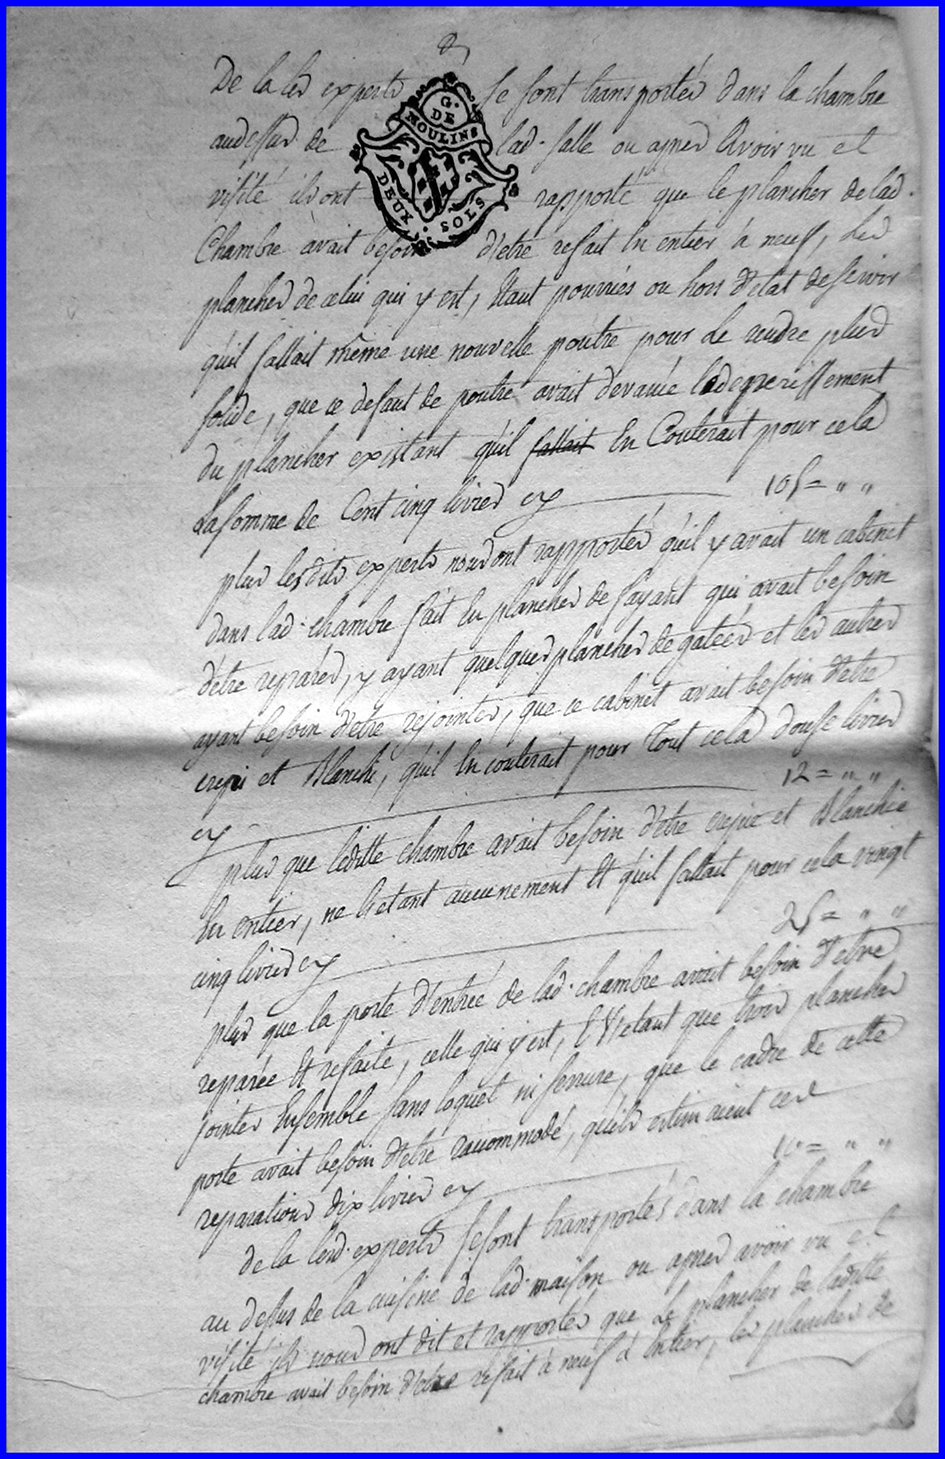 2
De la les experts se sont transportés dans la chambre
G. DE
MOULINS
DEUX SOLS
audessus de lad. salle ou apres avoir vu et
visité ils ont rapporté que le plancher de lad.
Chambre avait besoin d'etre refait en entier à neuf, les
planches de celui qui y est, etant pourries ou hors d'etat de servir
qu'il fallait même une nouvelle poutre pour le rendre plus
solide, que ce defaut de poutre avait devancé le deperissement
du plancher existant qu'il fallait en Couterait pour cela
La somme de Cent cinq livres cy 105 = " "
plus les dits experts nous ont rapportés qu'il y avait un cabinet
dans lad. chambre fait en planches de fayant qui avait besoin
d'etre reparés, y ayant quelques planches de gatées et les autres
ayant besoin d'etre rejointes, que ce cabinet avait besoin d'etre
crepi et Blanchi, qu'il en couterait pour Tout cela douse livres
cy 12 = " "
plus que laditte chambre avait besoin d'etre crepie et Blanchie
en entier, ne l'etant aucunement et qu'il fallait pour cela vingt
cinq livres cy 25 = " "
plus que la porte d'entrée de lad. chambre avait besoin d'etre
reparée et refaite, celle qui y est, n'etant que trois planches
jointes Ensemble sans loquet ni serrure, que le cadre de cette
porte avait besoin d'etre racommodé, qu'ils estimaient ces
reparations dix livres cy 10 = " "
de la lesd. experts se sont transportés dans la chambre
au dessus de la cuisine de lad. maison ou apres avoir vu et
visité ils nous ont dit et rapportés que le plancher de laditte
chambre avait besoin d'etre refait à neuf à entier, les planches de